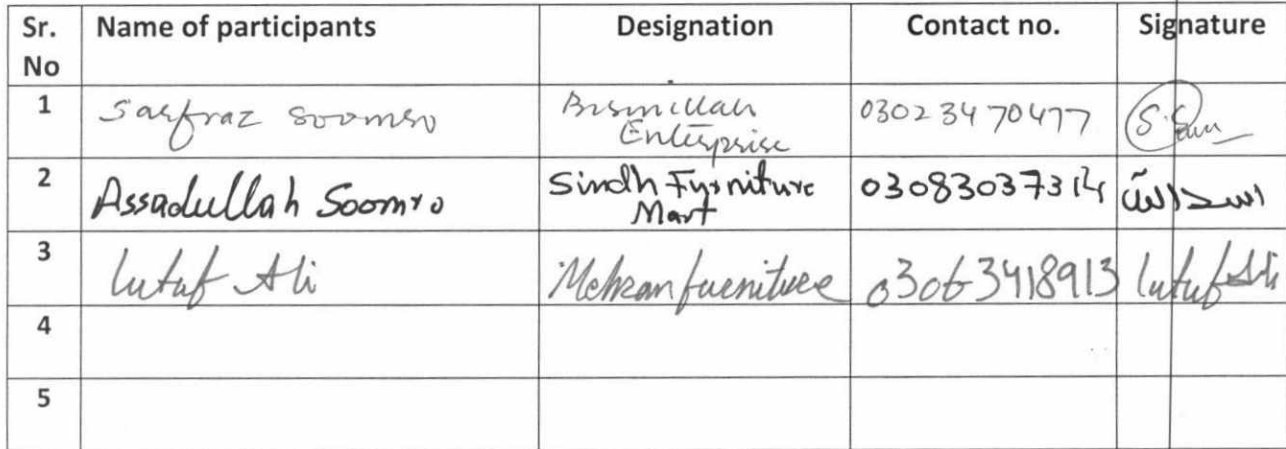 Sr. No Name of participants Designation Contact no. Signature
1 Sarfraz Soomro Bismillah Enterprise 03023470477
2 Assadullah Soomro Sindh Furniture Mart 03083037314 اسداللہ
3 Lutuf Ali Mehran furniture 03063418913 Lutuf Ali
4
5